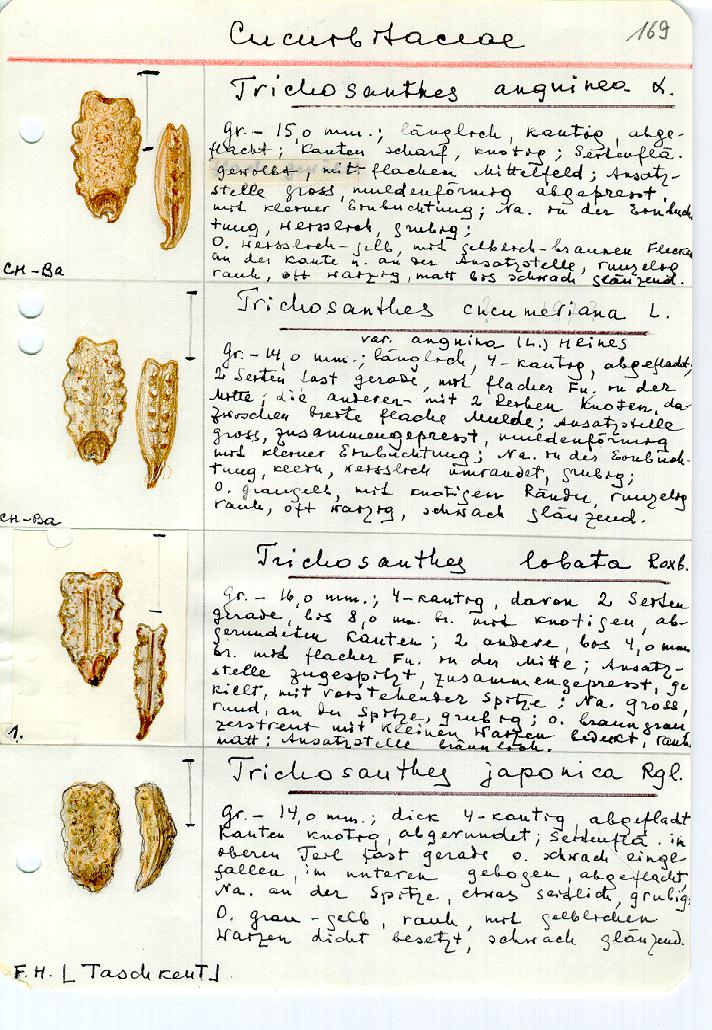 Cucurbitaceae
169
Trichosanthes anguinea L.
Gr.- 15,0 mm.; länglich, kantig, abge-
flacht; Kanten scharf, knotig; Seitenflä.
gewölbt, mit flachen Mittelfeld; Ansatz-
stelle gross, muldenförmig abgepresst,
mit kleiner Einbuchtung; Na. in der Einbuch
tung, weisslich, grubig;
O. weisslich-gelb, mit gelblich-braunen Flecken
an der Kante u. an der Ansatzstelle, runzelig
rauh, oft warzig, matt bis schwach glänzend.
CH-Ba
Trichosanthes cucumeriana L.
var. anguina (L.) Heines
Gr.- 14,0 mm.; länglich, 4-kantig, abgeflacht,
2 Seiten fast gerade, mit flacher Fu. in der
Mitte; die anderen mit 2 Reihen Knoten, da-
zwischen breite flache Mulde; Ansatzstelle
gross, zusammengepresst, muldenförmig
mit kleiner Einbuchtung; Na. in der Einbuch-
tung, klein, weisslich umrandet, grubig;
O. graugelb, mit knotigem Rändu, runzelig
rauh, oft warzig, schwach glänzend.
CH-Ba
Trichosanthes lobata Roxb.
Gr.- 16,0 mm.; 4-kantig, davon 2 Seiten
gerade, bis 8,0 mm. br. mit knotigen, ab-
gerundeten Kanten; 2 andere, bis 4,0 mm
br. mit flacher Fu. in der Mitte; Ansatz-
stelle zugespitzt, zusammengepresst, ge
kielt, mit vorstehender Spitze; Na. gross,
rund, an der Spitze, grubig; O. braungrau
zerstreut mit kleinen Warzen bedekt, rauh
matt; Ansatzstelle bräunlich.
1.
Trichosanthes japonica Rgl.
Gr.- 14,0 mm.; dick 4-kantig, abgeflacht
Kanten knotig, abgerundet; Seitenflä. im
oberen Teil fast gerade o. schwach einge-
fallen, im unteren gebogen, abgeflacht,
Na. an der Spitze, etwas seitlich, grubig;
O. grau-gelb, rauh, mit gelblichen
Warzen dicht besetzt, schwach glänzend.
F.H. [Taschkent]